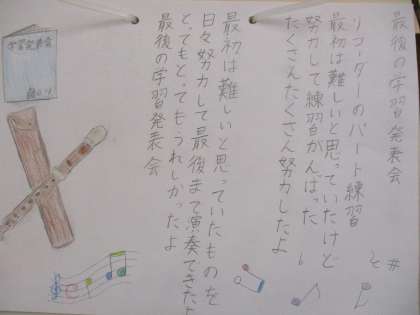 最後の学習発表会
リコーダーのパート練習
最初は難しいと思っていたけど
努力して練習がんばった
たくさんたくさん努力したよ
最初は難しいと思っていたものを
日々努力して最後まで演奏できたよ
とってもとってもうれしかったよ
最後の学習発表会
学習発表会